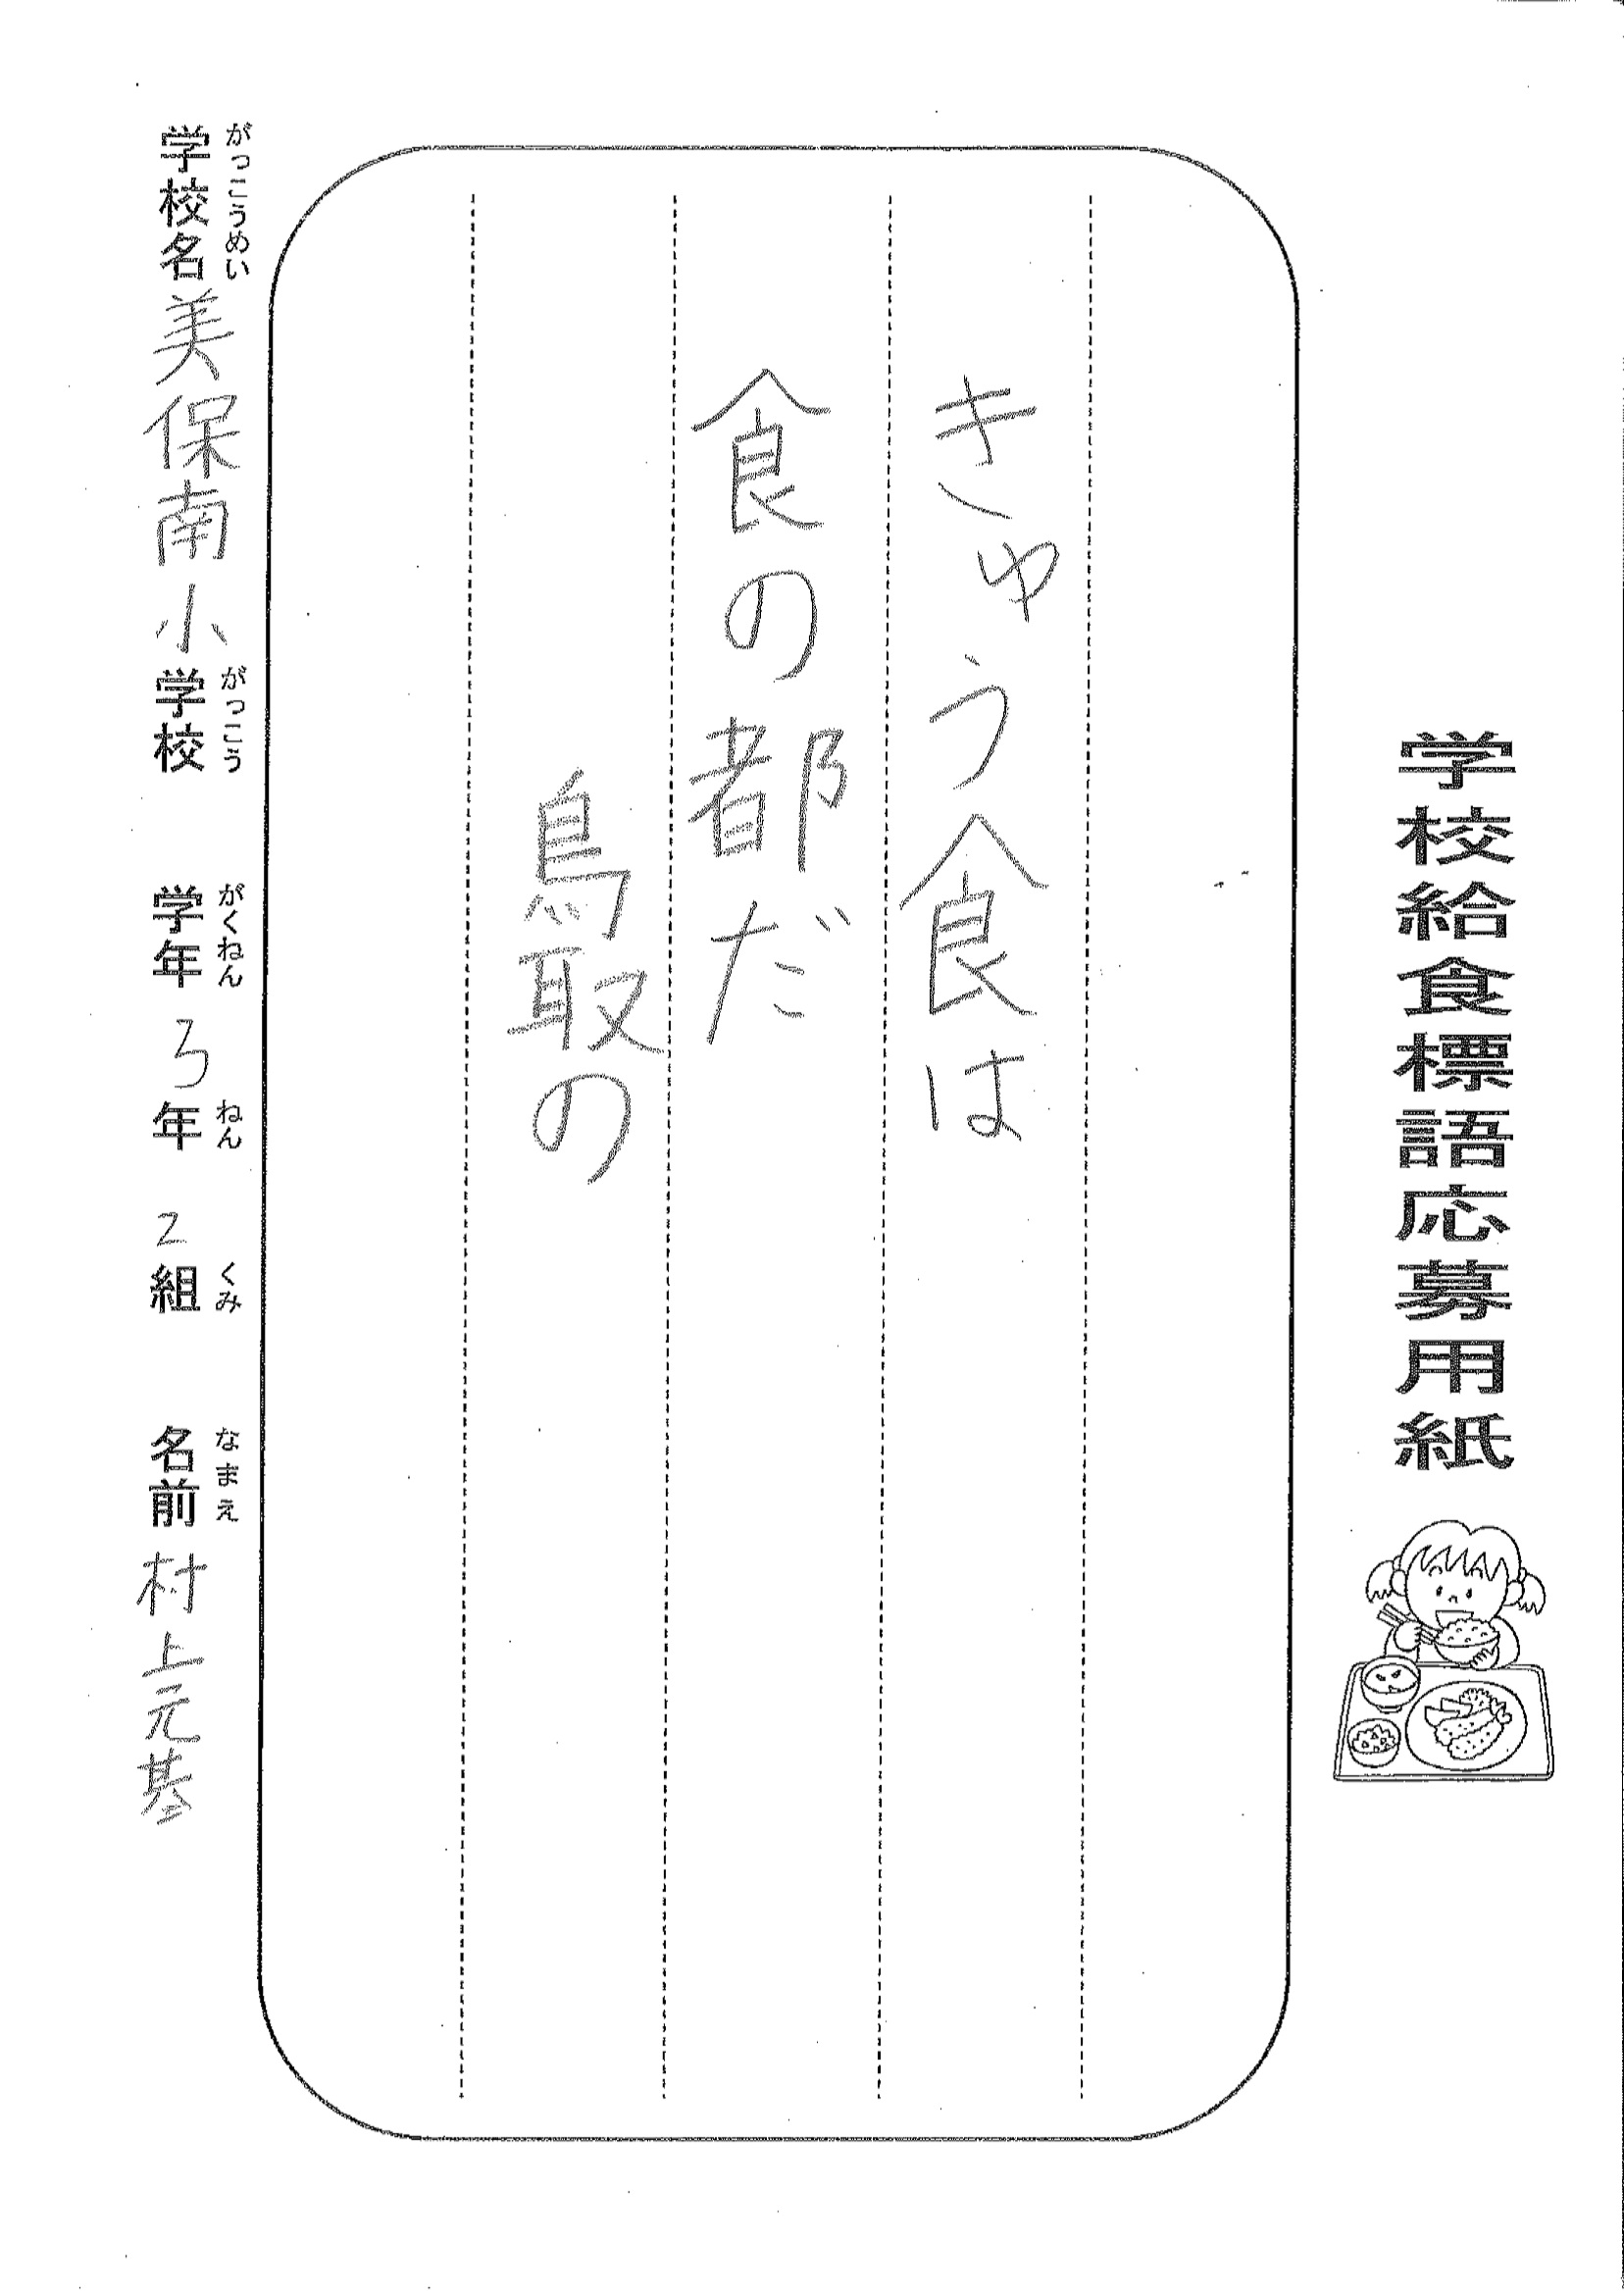 学校給食標語応募用紙
きゅう食は
食の都だ
鳥取の
学校名 美保南小学校 学年 3年 2組 名前 村上元基
がっこうめい がっこう がくねん ねん くみ なまえ